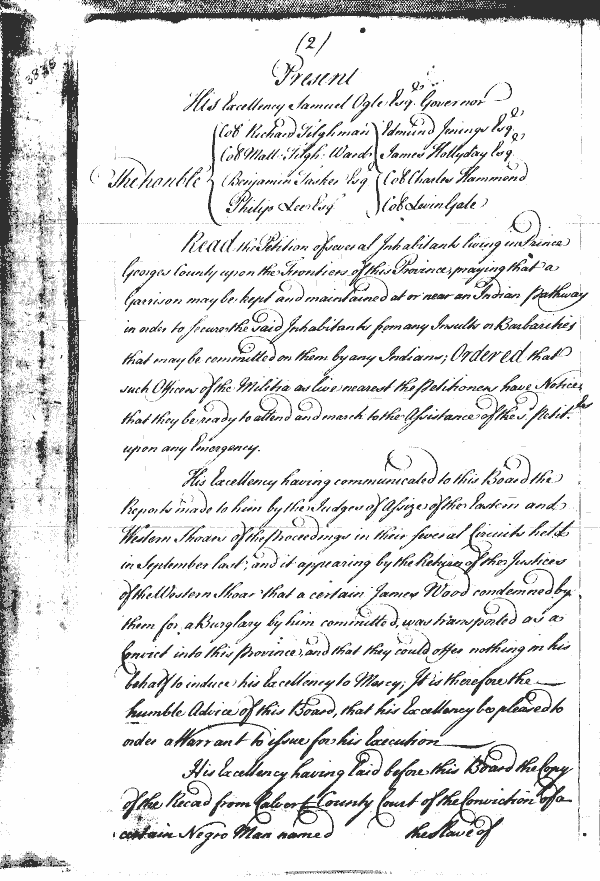 (2)
Present
His Excellency Samuel Ogle Esqr. Governor
The honble
Col Richard Tilghman
Col Matt. Tilgh. Ward
Benjamin Tasker Esq
Philip Lee Esq
Edmund Jenings Esqr
James Hollyday Esqr
Col Charles Hammond
Col Levin Gale
Read the Petition of several Inhabitants living in Prince
Georges County upon the Frontiers of this Province, praying that a
Garrison may be kept and maintained at or near an Indian Pathway
in order to secure the said Inhabitants from any Insults or Barbarities
that may be committed on them by any Indians; Ordered that
such Officers of the Militia as live nearest the Petitioners have Notice
that they be ready to attend and march to the Assistance of the s. Petit.rs
upon any Emergency.
His Excellency having communicated to this Board the
Reports made to him by the Judges of Assize of the Eastern and
Western Shoars of the Proceedings in their several Circuits held
in September last; and it appearing by the Return of the Justices
of the Western Shoar that a certain James Wood condemned by
them for a Burglary by him committed, was transported as a
Convict into this Province, and that they could offer nothing in his
behalf to induce his Excellency to Mercy; It is therefore the
humble Advice of this Board, that his Excellency be pleased to
order a Warrant to issue for his Execution
His Excellency having laid before this Board the Copy
of the Record from Calvert County Court of the Conviction of a
certain Negro Man named the slave of